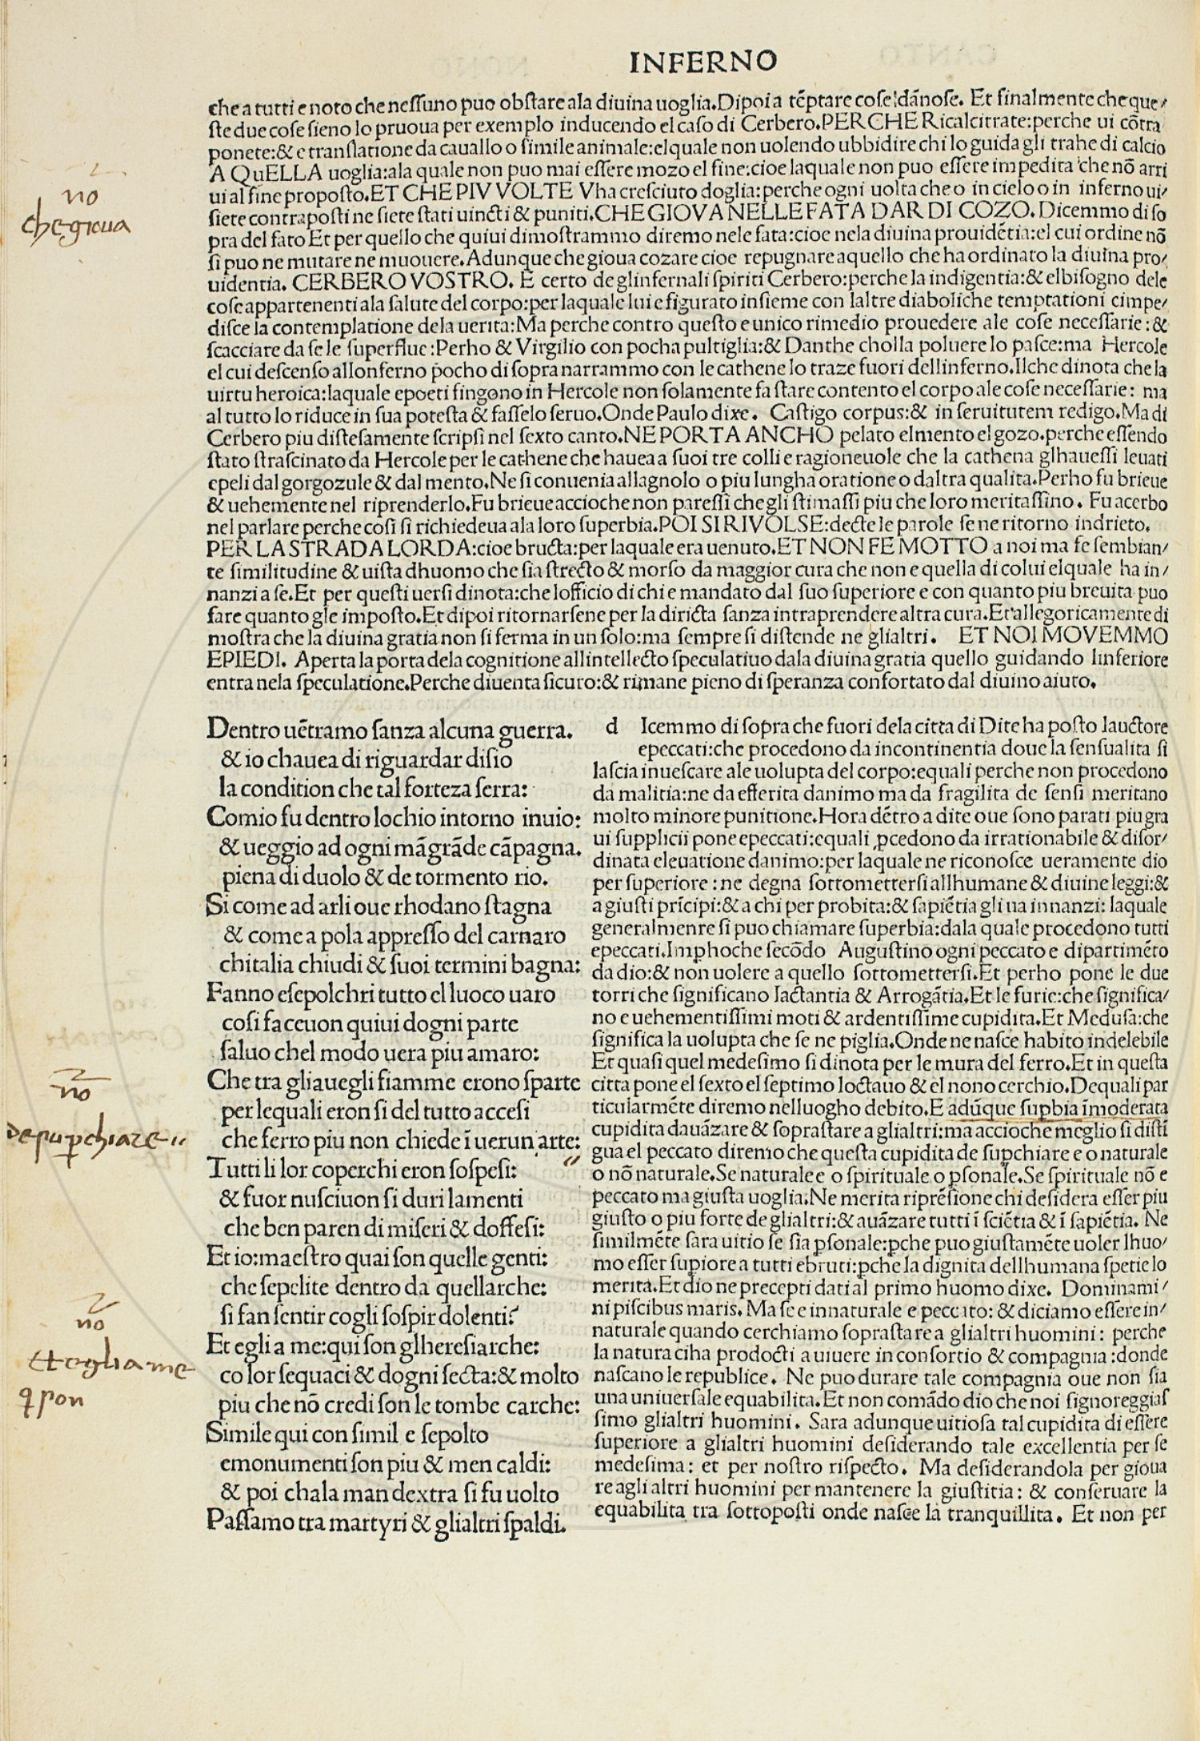 INFERNO
che a tutti e noto che neſſuno puo obſtare ala diuina uoglia.Dipoi a tẽptare coſe dãnoſe. Et finalmente che que/
ſte due coſe ſieno lo pruoua per exemplo inducendo el caſo di Cerbero.PERCHE Ricalcitrate:perche ui cõtra
ponete:& e tranſlatione da cauallo o ſimile animale:elquale non uolendo ubbidire chi lo guida gli trahe di calcio
A QuELLA uoglia:ala quale non puo mai eſſere mozo el fine:cioe laquale non puo eſſere impedita che nõ arri
ui al fine propoſto.ET CHE PIV VOLTE Vha creſciuto doglia:perche ogni uolta che o in cielo o in inferno ui/
ſiete contrapoſti ne ſiete ſtati uincti & puniti.CHE GIOVA NELLE FATA DAR DI COZO.Dicemmo di ſo
pra del fato Et per quello che quiui dimoſtrammo diremo nele fata:cioe nela diuina prouidẽtia:el cui ordine nõ
ſi puo ne mutare ne muouere.Adunque che gioua cozare cioe repugnare aquello che ha ordinato la diuina pro/
uidentia. CERBERO VOSTRO. E certo deglinfernali ſpiriti Cerbero:perche la indigentia:& elbiſogno dele
coſe appartenenti ala ſalute del corpo:per laquale lui e figurato inſieme con laltre diaboliche temptationi cimpe/
diſce la contemplatione dela uerita:Ma perche contro queſto e unico rimedio prouedere ale coſe neceſſarie:&
ſcacciare da ſe le ſuperflue:Perho & Virgilio con pocha pultiglia:& Danthe cholla poluere lo paſce:ma Hercole
el cui deſcenſo allonferno pocho di ſopra narrammo con le cathene lo traze fuori dellinferno.Ilche dinota che la
uirtu heroica:laquale epoeti fingono in Hercole non ſolamente fa ſtare contento el corpo ale coſe neceſſarie: ma
al tutto lo riduce in ſua poteſta & faſſelo ſeruo.Onde Paulo dixe. Caſtigo corpus:& in ſeruitutem redigo.Ma di
Cerbero piu diſteſamente ſcripſi nel ſexto canto.NE PORTA ANCHO pelato elmento el gozo.perche eſſendo
ſtato ſtraſcinato da Hercole per le cathene che hauea a ſuoi tre colli e ragioneuole che la cathena glhaueſſi leuati
epeli dal gorgozule & dal mento.Ne ſi conuenia allagnolo o piu lungha oratione o daltra qualita.Perho fu brieue
& uehemente nel riprenderlo.Fu brieue accioche non pareſſi che gli ſtimaſſi piu che loro meritaſſino. Fu acerbo
nel parlare perche coſi ſi richiedeua ala loro ſuperbia.POI SI RIVOLSE:decte le parole ſe ne ritorno indrieto.
PER LA STRADA LORDA:cioe bructa:per laquale era uenuto.ET NON FE MOTTO a noi ma fe ſembian/
te ſimilitudine & uiſta dhuomo che ſia ſtrecto & morſo da maggior cura che non e quella di colui elquale ha in/
nanzi a ſe.Et per queſti uerſi dinota:che lofficio di chi e mandato dal ſuo ſuperiore e con quanto piu breuita puo
fare quanto gle impoſto.Et dipoi ritornarſene per la diricta ſanza intraprendere altra cura.Et allegoricamente di
moſtra che la diuina gratia non ſi ferma in un ſolo:ma ſempre ſi diſtende ne glialtri. ET NOI MOVEMMO
EPIEDI. Aperta la porta dela cognitione allintellecto ſpeculatiuo dala diuina gratia quello guidando linferiore
entra nela ſpeculatione.Perche diuenta ſicuro:& rimane pieno di ſperanza confortato dal diuino aiuto.
Dentro uẽtramo ſanza alcuna guerra.
& io chauea di riguardar diſio
la condition che tal forteza ſerra:
Comio fu dentro lochio intorno inuio:
& ueggio ad ogni mã grãde cãpagna.
piena di duolo & de tormento rio.
Si come ad arli oue rhodano ſtagna
& come a pola appreſſo del carnaro
chitalia chiudi & ſuoi termini bagna:
Fanno eſepolchri tutto el luoco uaro
coſi faceuon quiui dogni parte
ſaluo chel modo uera piu amaro:
Che tra gliauegli fiamme erono ſparte
per lequali eron ſi del tutto acceſi
che ferro piu non chiede ĩ uerun arte:
Tutti li lor coperchi eron ſoſpeſi:
& fuor nuſciuon ſi duri lamenti
che ben paren di miſeri & doffeſi:
Et io:maeſtro quai ſon quelle genti:
che ſepelite dentro da quellarche:
ſi fan ſentir cogli ſoſpir dolenti?
Et egli a me:qui ſon glhereſiarche:
co lor ſequaci & dogni ſecta:& molto
piu che nõ credi ſon le tombe carche:
Simile qui con ſimil e ſepolto
emonumenti ſon piu & men caldi:
& poi chala man dextra ſi fu uolto
Paſſamo tra martyri & glialtri ſpaldi.
d Icemmo di ſopra che fuori dela citta di Dite ha poſto lauctore
epeccati:che procedono da incontinentia doue la ſenſualita ſi
laſcia inueſcare ale uolupta del corpo:equali perche non procedono
da malitia:ne da efferita danimo ma da fragilita de ſenſi meritano
molto minore punitione.Hora dẽtro a dite oue ſono parati piu gra
ui ſupplicii pone epeccati:equali ꝓcedono da irrationabile & diſor/
dinata eleuatione danimo:per laquale ne riconoſce ueramente dio
per ſuperiore:ne degna ſottometterſi allhumane & diuine leggi:&
a giuſti prĩcipi:& a chi per probita:& ſapiẽtia gli ua innanzi: laquale
generalmenre ſi puo chiamare ſuperbia:dala quale procedono tutti
epeccati.Imphoche ſecõdo Auguſtino ogni peccato e dipartimẽto
da dio:& non uolere a quello ſottometterſi.Et perho pone le due
torri che ſignificano Iactantia & Arrogãtia.Et le furie:che ſignifica/
no e uehementiſſimi moti & ardentiſſime cupidita.Et Meduſa:che
ſignifica la uolupta che ſe ne piglia.Onde ne naſce habito indelebile
Et quaſi quel medeſimo ſi dinota per le mura del ferro.Et in queſta
citta pone el ſexto el ſeptimo loctauo & el nono cerchio.Dequali par
ticularmẽte diremo nelluogho debito.E adũque ſupbia ĩmoderata
cupidita dauãzare & ſopraſtare a glialtri:ma accioche meglio ſi diſtĩ
gua el peccato diremo che queſta cupidita de ſupchiare e o naturale
o nõ naturale.Se naturale e o ſpirituale o pſonale.Se ſpirituale nõ e
peccato ma giuſta uoglia.Ne merita riprẽſione chi deſidera eſſer piu
giuſto o piu forte de glialtri:& auãzare tutti ĩ ſciẽtia & ĩ ſapiẽtia. Ne
ſimilmẽte ſara uitio ſe ſia pſonale:pche puo giuſtamẽte uoler lhuo/
mo eſſer ſupiore a tutti ebruti:pche la dignita dellhumana ſpetie lo
merita.Et dio ne precepti dati al primo huomo dixe. Dominami/
ni piſcibus maris. Ma ſe e innaturale e peccato: & diciamo eſſere in/
naturale quando cerchiamo ſopraſtare a glialtri huomini: perche
la natura ciha prodocti a uiuere in conſortio & compagnia:donde
naſcano le republice. Ne puo durare tale compagnia oue non ſia
una uniuerſale equabilita.Et non comãdo dio che noi ſignoreggiaſ
ſimo glialtri huomini. Sara adunque uitioſa tal cupidita di eſſere
ſuperiore a glialtri huomini deſiderando tale excellentia per ſe
medeſima: et per noſtro riſpecto. Ma deſiderandola per gioua
re agli altri huomini per mantenere la giuſtitia: & conſeruare la
equabilita tra ſottopoſti onde naſce la tranquillita. Et non per
no
che gioua
no
no